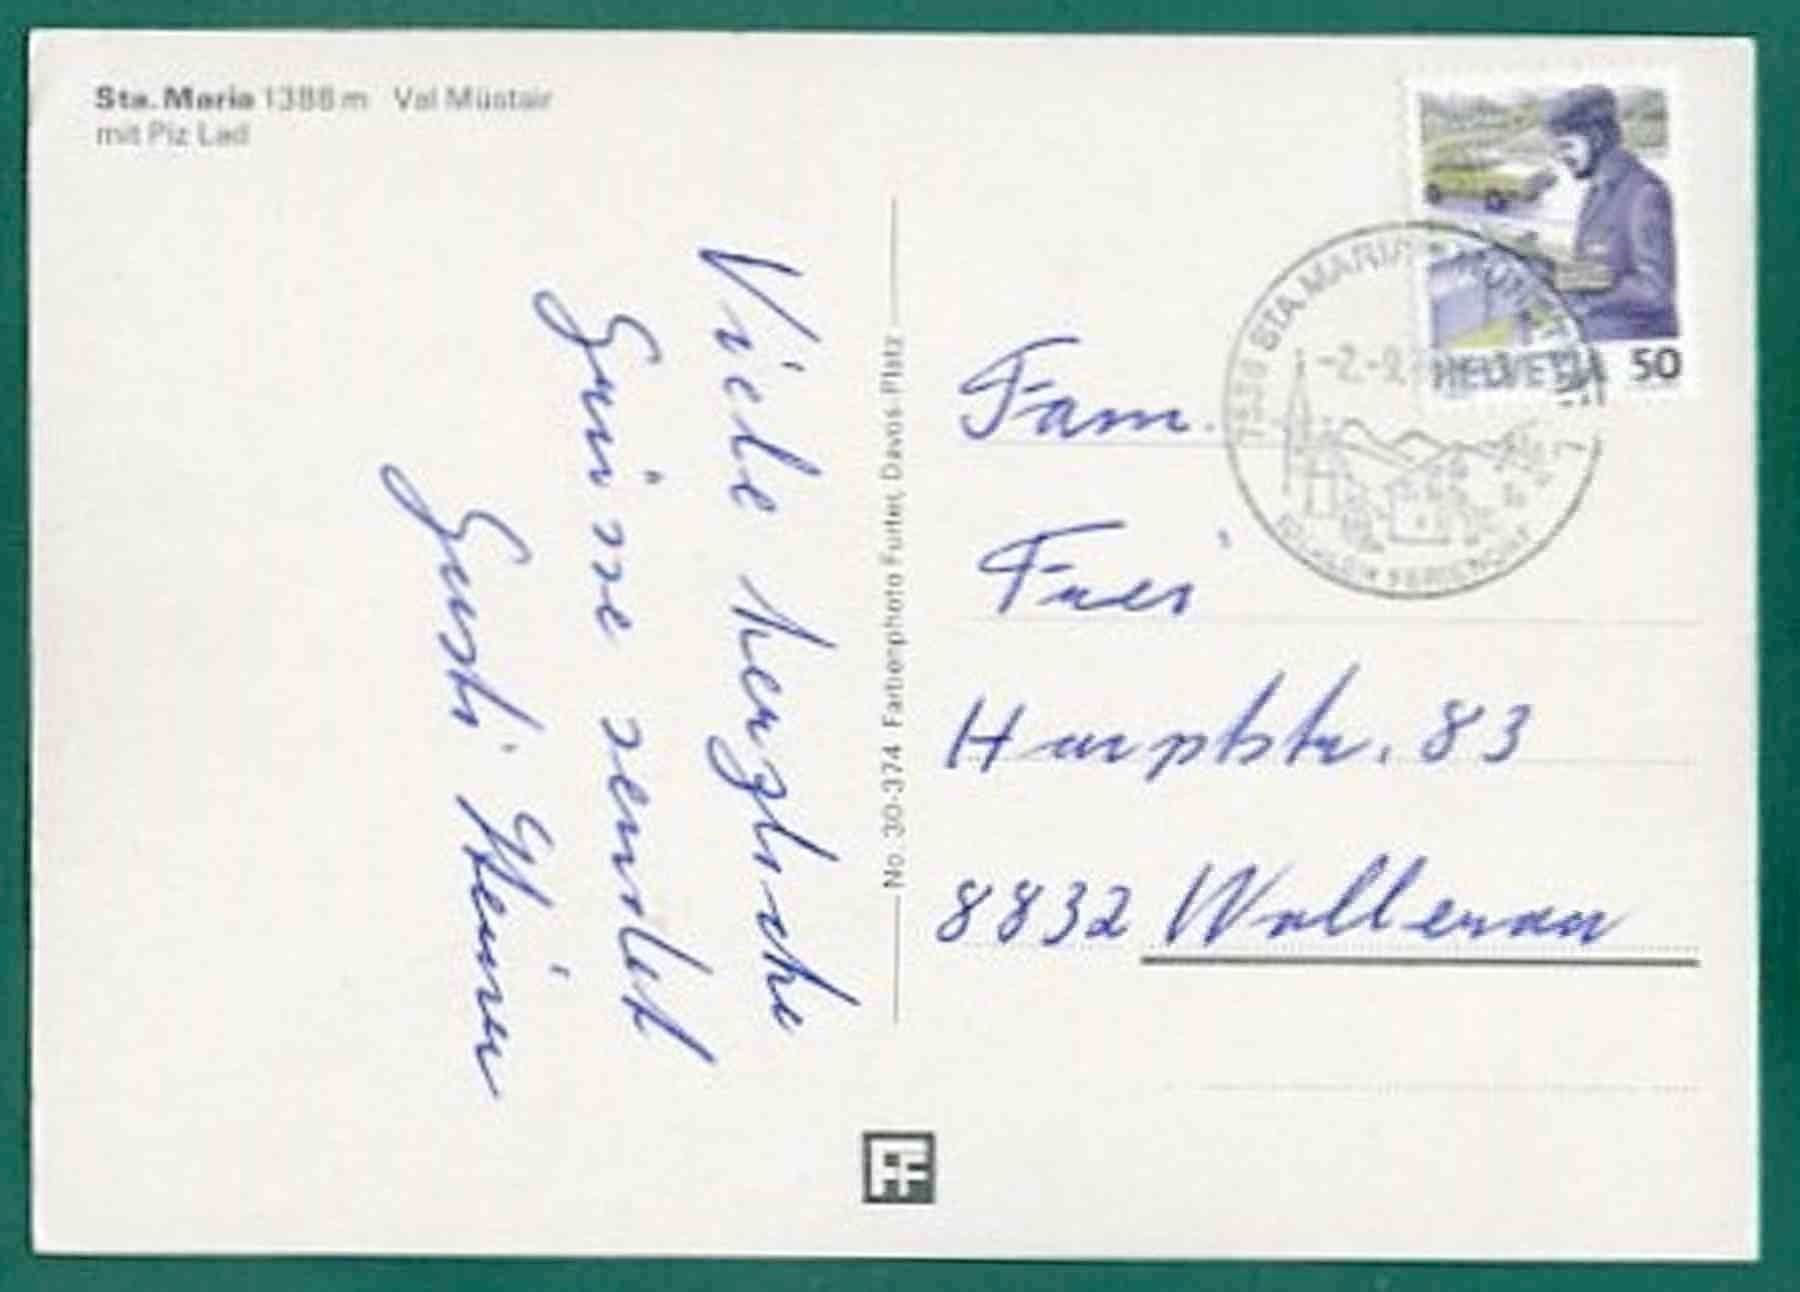 Sta. Maria 1388 m Val Müstair
mit Piz Lad
Viele herzliche
Grüsse sendet
Gusti
No. 30-374 Farbenphoto Furter, Davos-Platz
HELVETIA 50
STA. MARIA
-2.-9.
FERIENORT
Fam.
Frei
Hauptstr. 83
8832 Wollerau
FF